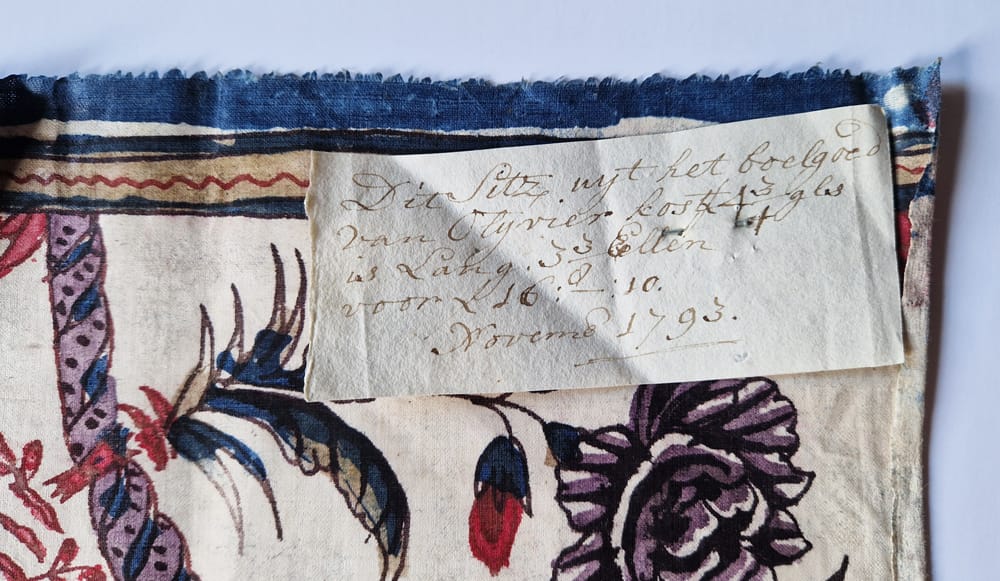 Dit Sitz, uyt het boelgoed
van Olyvier kost 4 3/4 gls
is Lang. 3 3/8 Ellen
voor £ 16 : – : 10.
Novemb 1793.